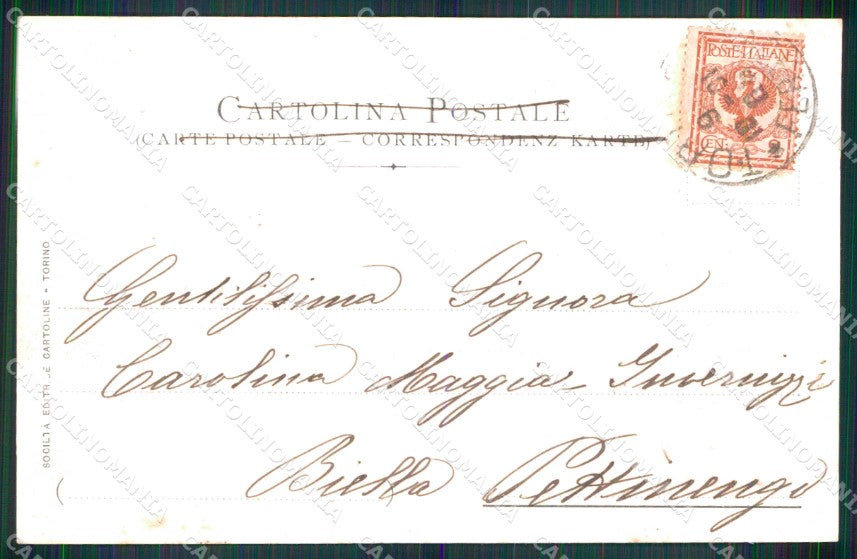 CARTOLINA POSTALE
(CARTE POSTALE — CORRESPONDENZ KARTE)
POSTE ITALIANE
CEN. 2
SOCIETÀ EDITR. DE CARTOLINE - TORINO
Gentilissima Signora
Carolina Maggia-Invernizzi
Biella Pettinengo
CARTOLINOMANIA